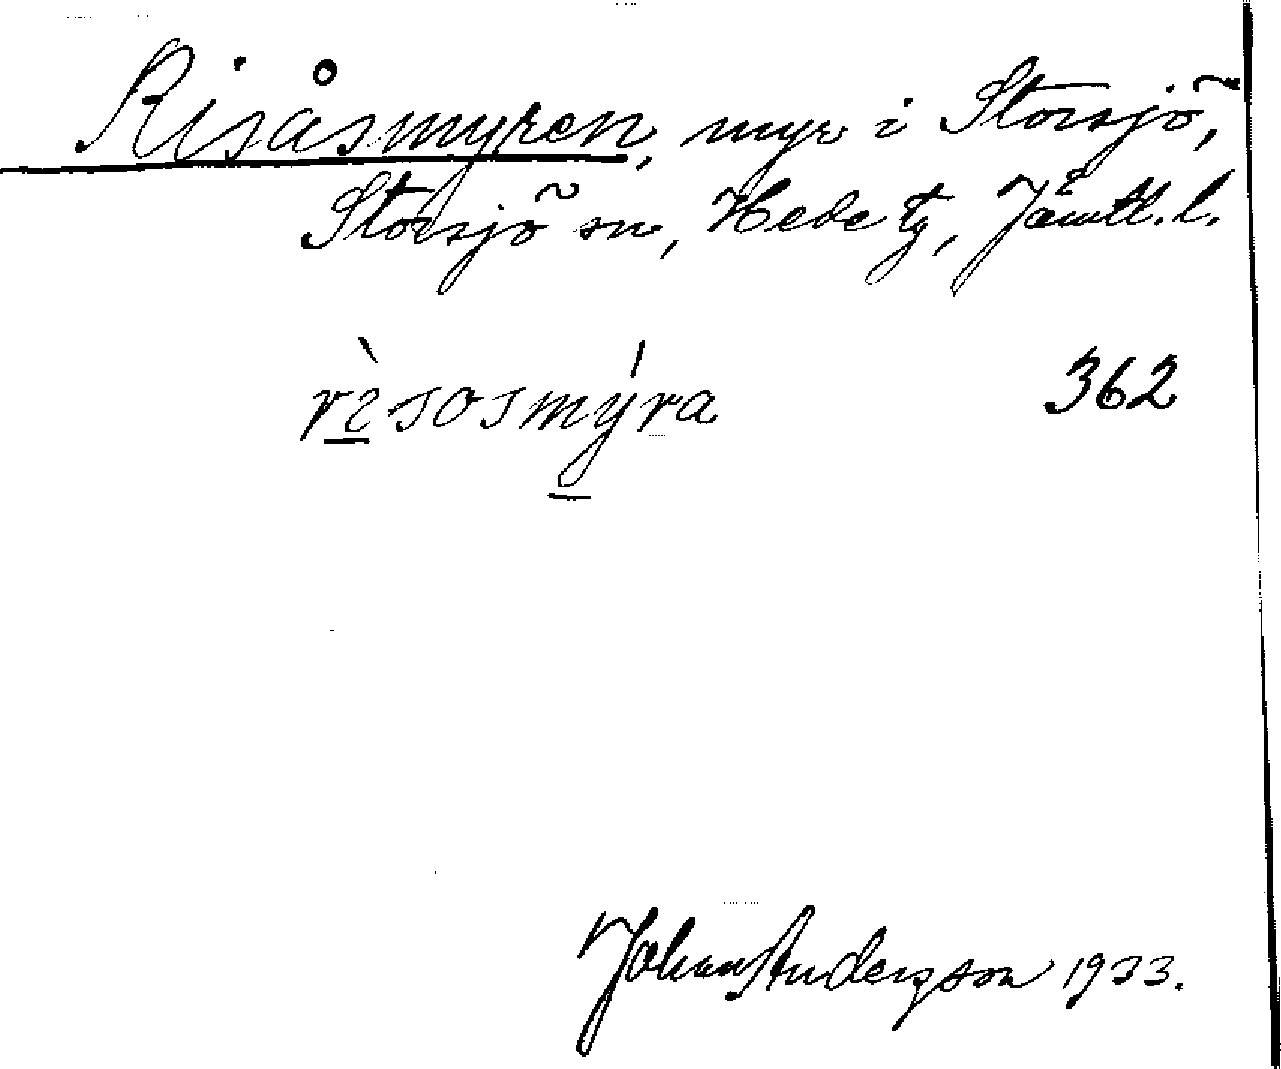 Risåsmyren, myr i Storsjö,
Storsjö sn, Hede tg, Jämtl. l.
rìsosmýra 362
Johan Andersson 1933.